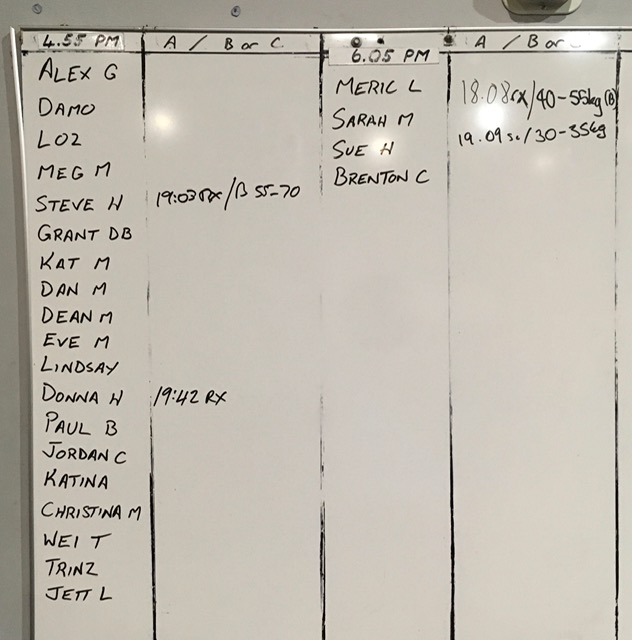 4.55 PM
A / B or C
ALEX G
DAMO
LOZ
MEG M
STEVE H 19:03 RX / B 55-70
GRANT DB
KAT M
DAN M
DEAN M
EVE M
LINDSAY
DONNA H 19:42 RX
PAUL B
JORDAN C
KATINA
CHRISTINA M
WEI T
TRINZ
JETT L
6.05 PM
A / B or
MERIC L 18.08 rx/40-55kg (B)
SARAH M 19.09 sc/30-35kg
SUE H
BRENTON C